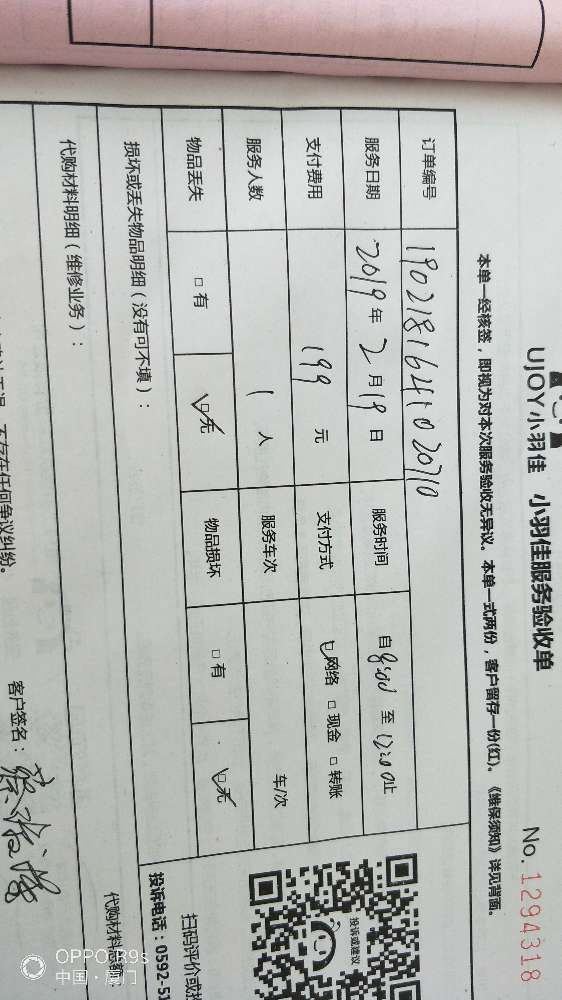 UJOY小羽佳 小羽佳服务验收单 No. 1294318
本单一经核签，即视为对本次服务验收无异议。本单一式两份，客户留存一份(红)。《维保须知》详见背面。
订单编号 1902181641020710
服务日期 2019年2月19日 服务时间 自8:00至12:00止
支付费用 199元 支付方式 □网络 □现金 □转账
服务人数 1人 服务车次 车/次
物品丢失 □有 □无 物品损坏 □有 □无
损坏或丢失物品明细（没有可不填）：
代购材料明细（维修业务）：
投诉或建议
扫码评价或投
投诉电话：0592-5
代购材料
不存在任何争议纠纷。
客户签名：
OPPO R9s
中国·厦门